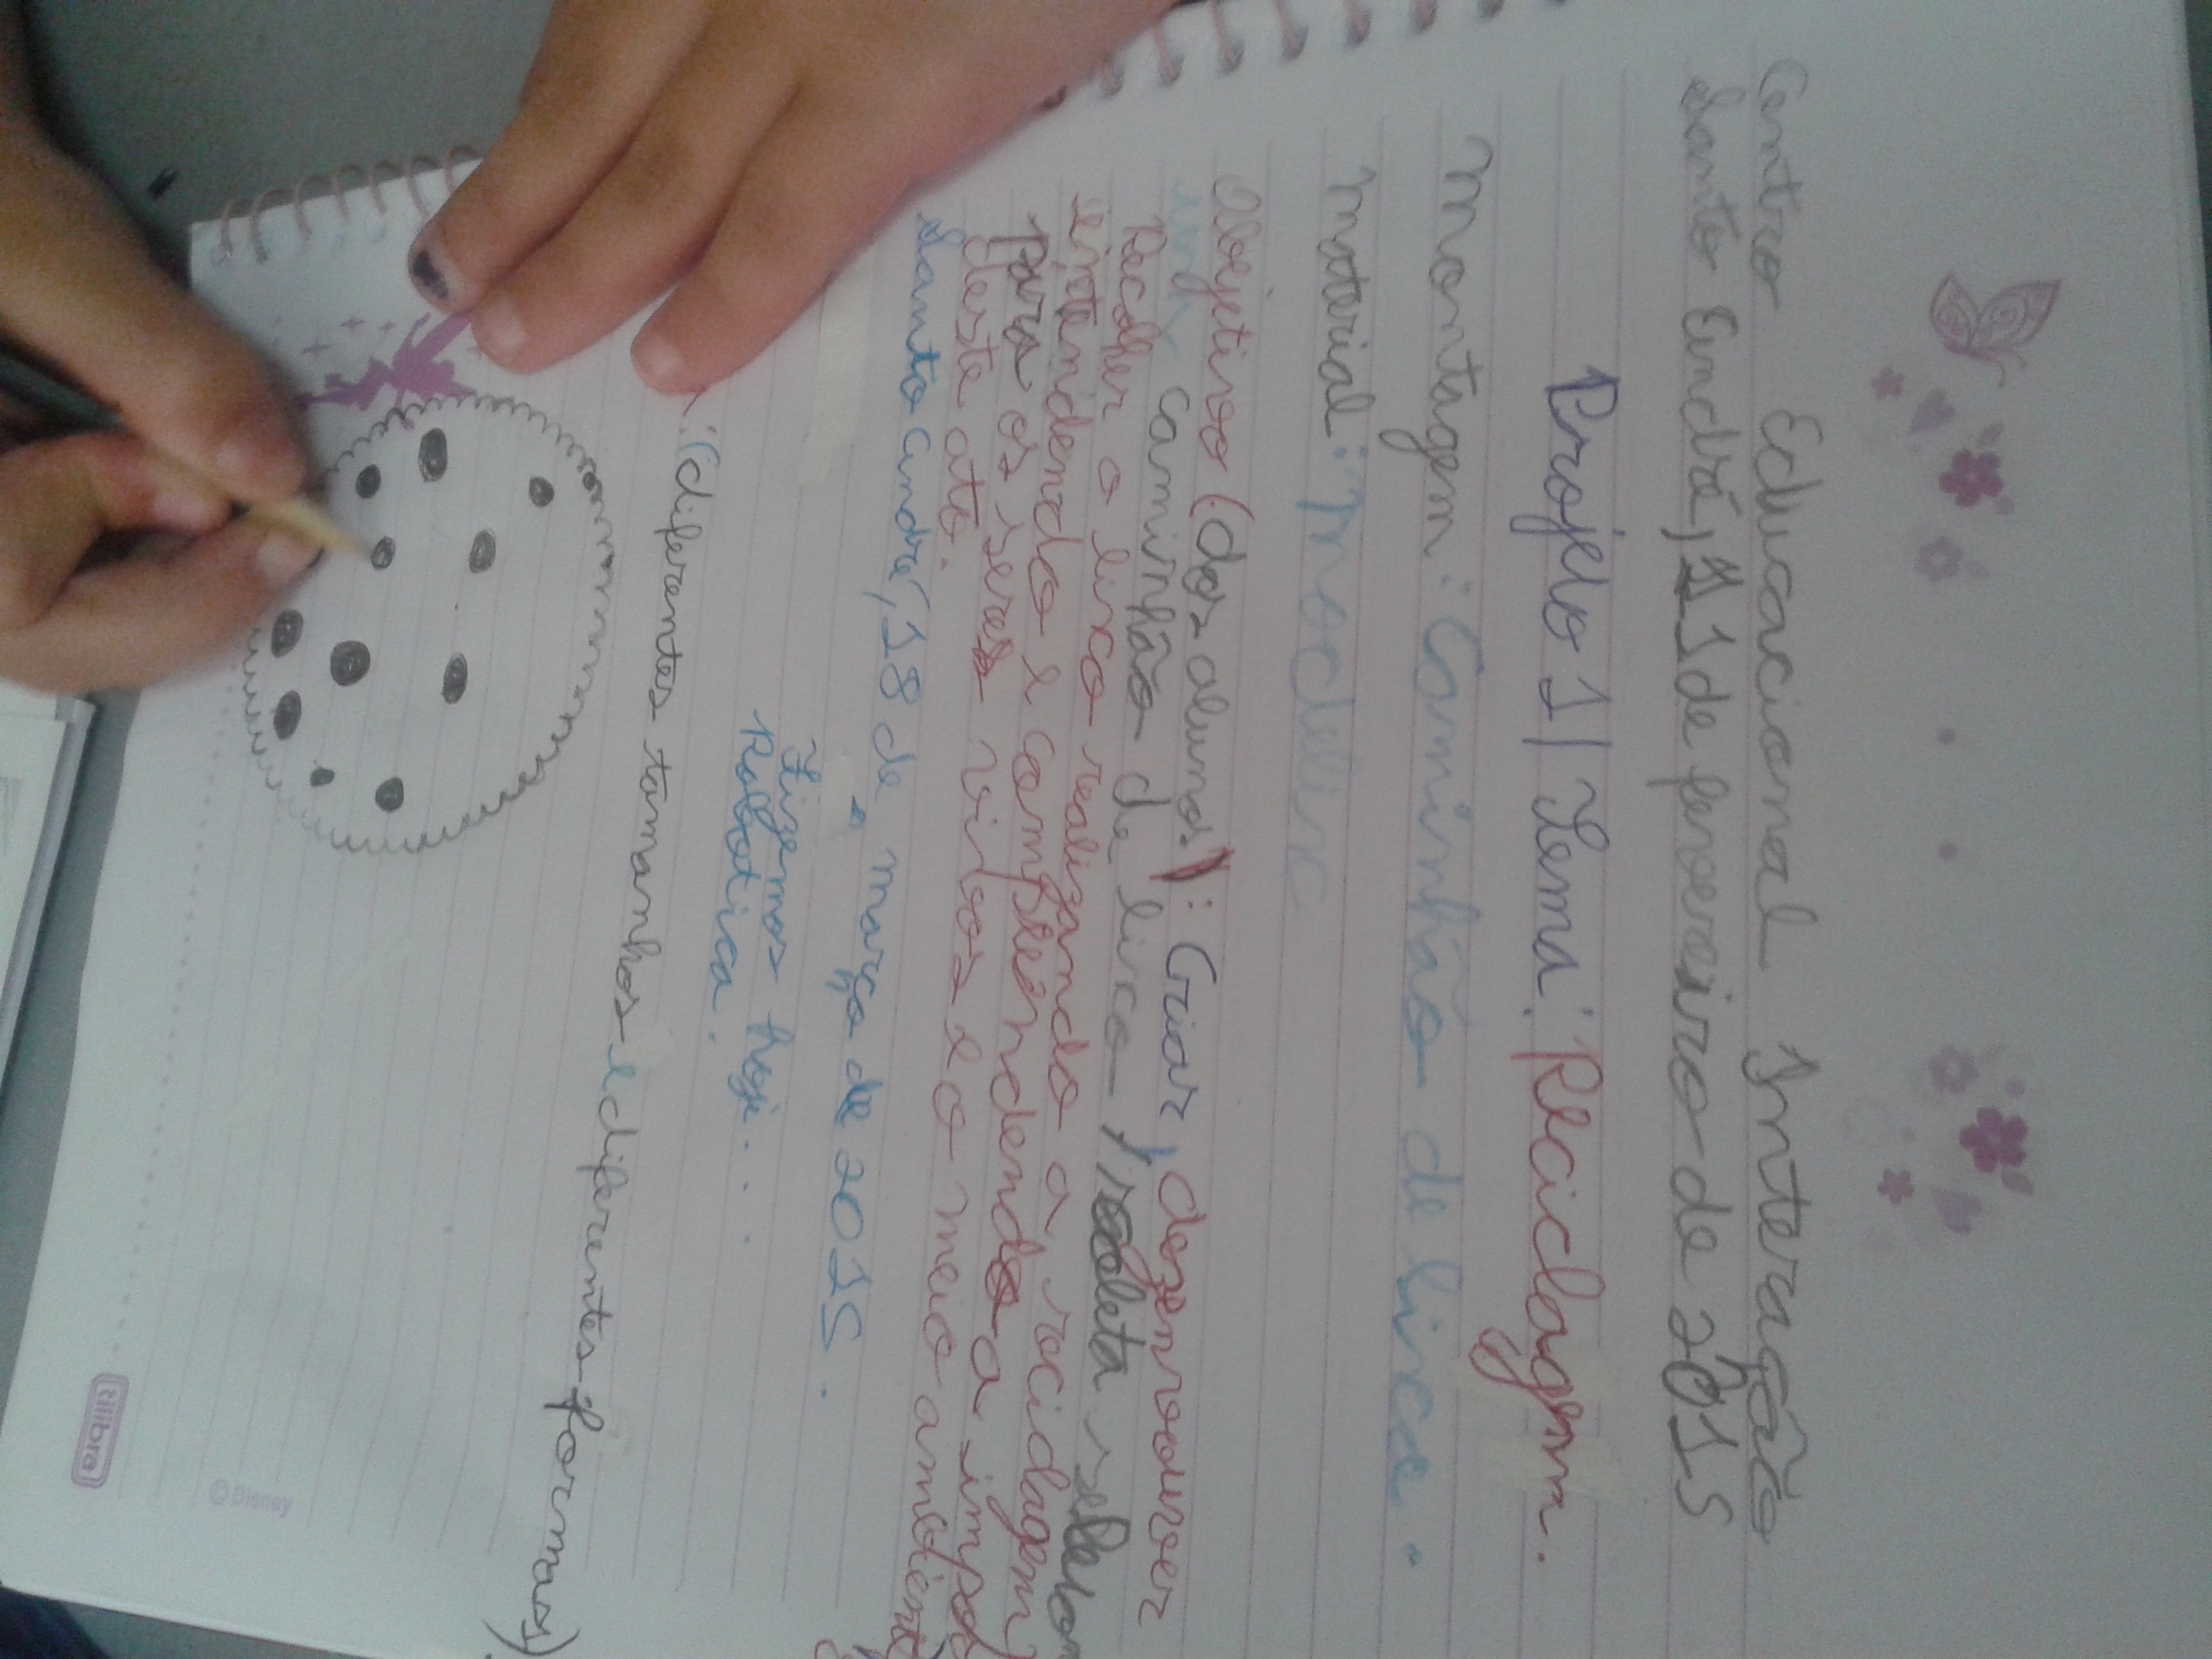 Centro Educacional Interação
Santo André, 11 de fevereiro de 2015
Projeto 1 | Tema: Reciclagem.
Montagem: Caminhão de lixo.
Material: Modelix
Objetivo (dos alunos): Criar, desenvolver
um caminhão de lixo, coleta
Recolher o lixo realizando a reciclagem
entendendo e compreendendo a
para os seres vivos e o meio ambiente
deste ato.
Santo André, 18 de março de 2015.
Fizemos hoje...
Robotica.
: (diferentes tamanhos e diferentes formas)
tilibra
© Disney